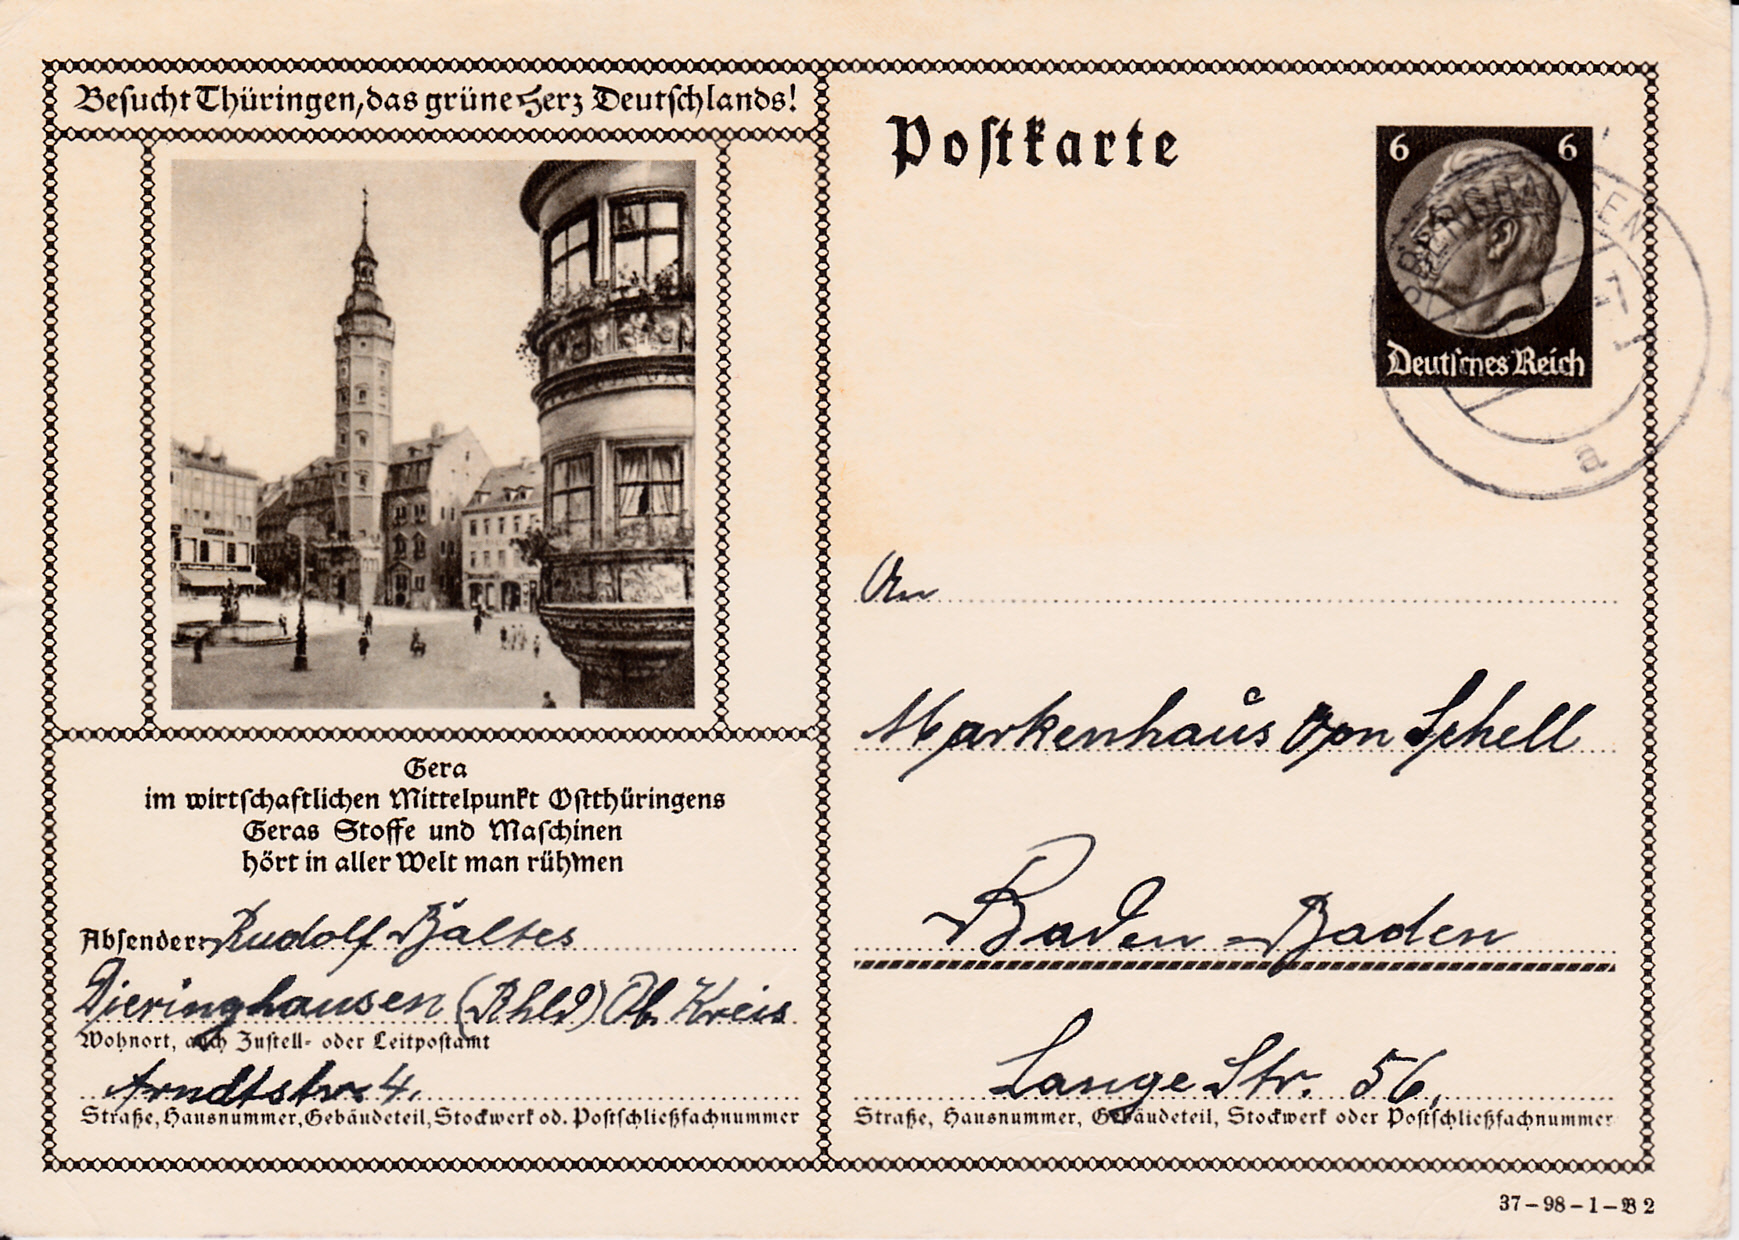 Besucht Thüringen, das grüne Herz Deutschlands!
Postkarte
6 6
Deutsches Reich
a
Gera
im wirtschaftlichen Mittelpunkt Ostthüringens
Geras Stoffe und Maschinen
hört in aller Welt man rühmen
Absender: Rudolf Baltes
Dieringhausen (Rhld) Ob. Kreis
Wohnort, auch Zustell- oder Leitpostamt
Arndtstr. 4.
Straße, Hausnummer, Gebäudeteil, Stockwerk od. Postschließfachnummer
An
Markenhaus von Schell
Baden-Baden
Lange Str. 56,
Straße, Hausnummer, Gebäudeteil, Stockwerk oder Postschließfachnummer
37-98-1-B 2